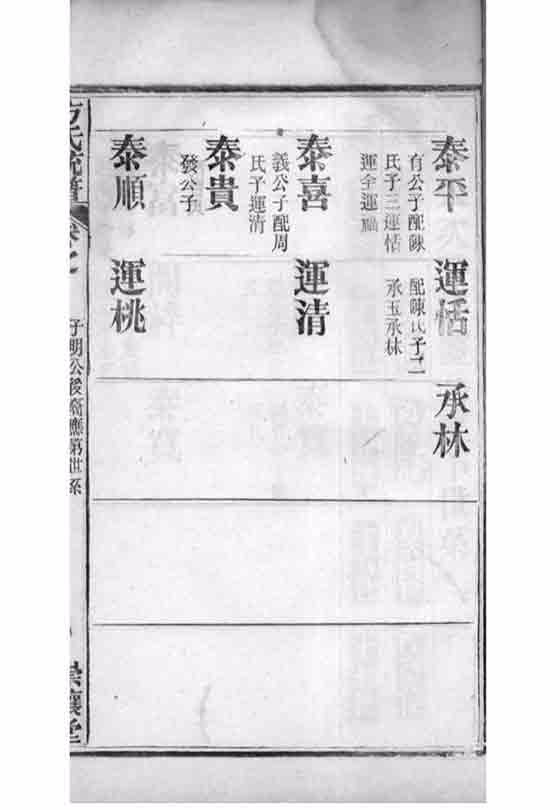 泰平
有公子配陳
氏子三運恬
運全運福
運恬
配陳氏子二
承玉承林
承林
泰喜
義公子配周
氏子運清
運清
泰貴
發公子
泰順
運桃
方氏統譜
卷之
子明公後裔應第世系
崇讓堂